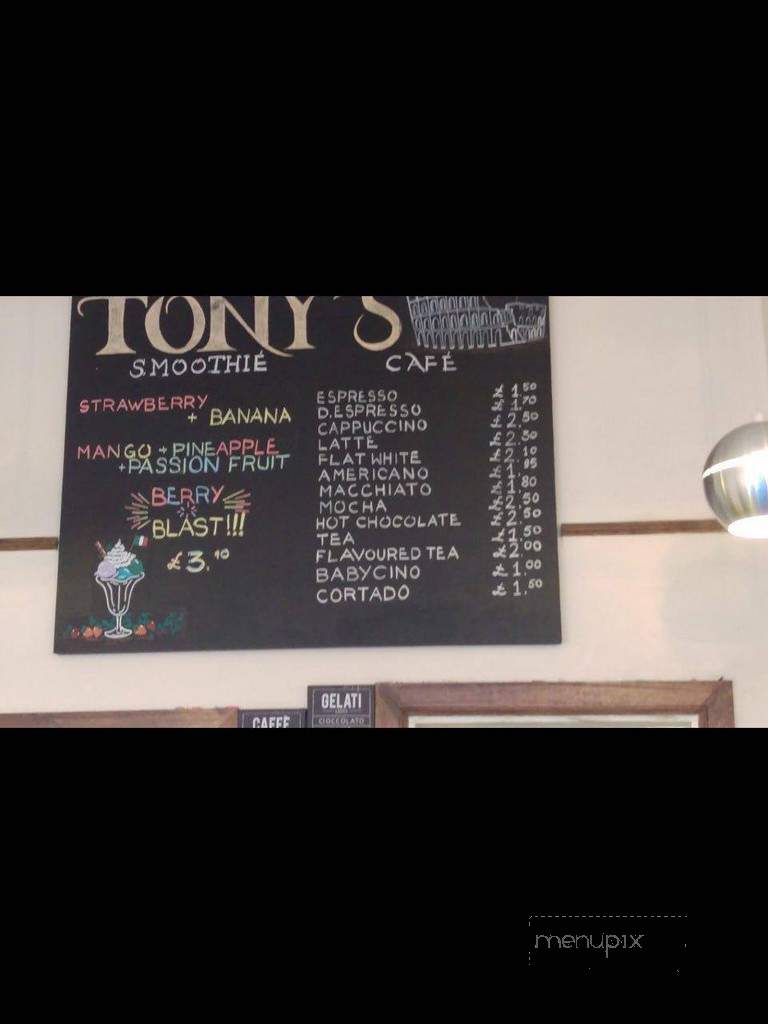 TONY'S
SMOOTHIE
STRAWBERRY
+ BANANA
MANGO + PINEAPPLE
+PASSION FRUIT
BERRY
BLAST!!!
£3.10
CAFÉ
ESPRESSO £1.50
D.ESPRESSO £1.70
CAPPUCCINO £2.50
LATTE £2.30
FLAT WHITE £2.10
AMERICANO £1.85
MACCHIATO £1.80
MOCHA £2.50
HOT CHOCOLATE £2.50
TEA £1.50
FLAVOURED TEA £2.00
BABYCINO £1.00
CORTADO £1.50
GELATI
CIOCCOLATO
CAFFÉ
menupix